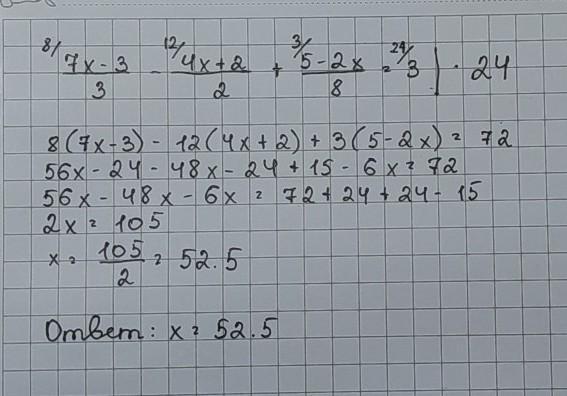 8/ 7x-3/3 - 12/ 4x+2/2 + 3/ 5-2x/8 = 24/ 3 | · 24
8(7x-3) - 12(4x+2) + 3(5-2x) = 72
56x - 24 - 48x - 24 + 15 - 6x = 72
56x - 48x - 6x = 72 + 24 + 24 - 15
2x = 105
x = 105/2 = 52.5
Ответ: x = 52.5